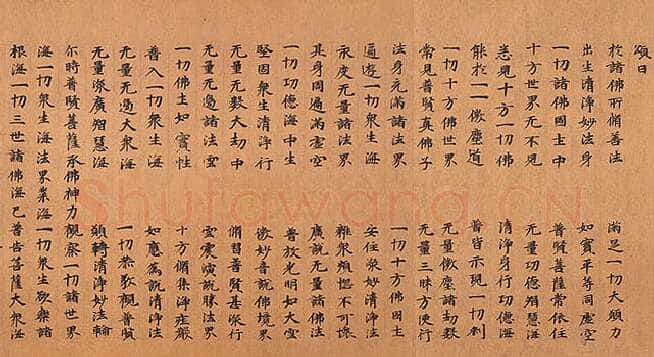 頌曰
於諸佛所脩善法 滿足一切大願力
出生清淨妙法身 如實平等同虛空
一切諸佛國土中 普賢菩薩常依住
十方世界无不見 无量功德辯慧海
悉見十方一切佛 清淨身行功德海
能於一一微塵道 普皆示現一切刹
一切十方佛世界 无量微塵諸劫數
常見普賢真佛子 无量三昧方便行
法身充滿諸法界 一切十方佛國土
遍遊一切眾生海 安住深妙清淨法
永度无量諸法界 煩惱不可壞
其身周遍滿虛空 廣說无量諸佛法
一切功德海中生 普放光明如大雲
堅固眾生清淨行 微妙音說佛境界
无量无數大劫中 脩習普賢甚深行
无量无邊諸法雲 雲震演說勝法界
一切佛土如實性 十方脩集淨莊嚴
普入一切眾生海 如應為說清淨法
无量无邊大眾海 一切恭敬觀普賢
无量深廣智慧海 願轉清淨妙法輪
尒時普賢菩薩承佛神力觀察一切諸世界
海一切眾生海法界業海一切眾生欲樂諸
根海一切三世諸佛海已普告菩薩大眾海
Shufawang.CN